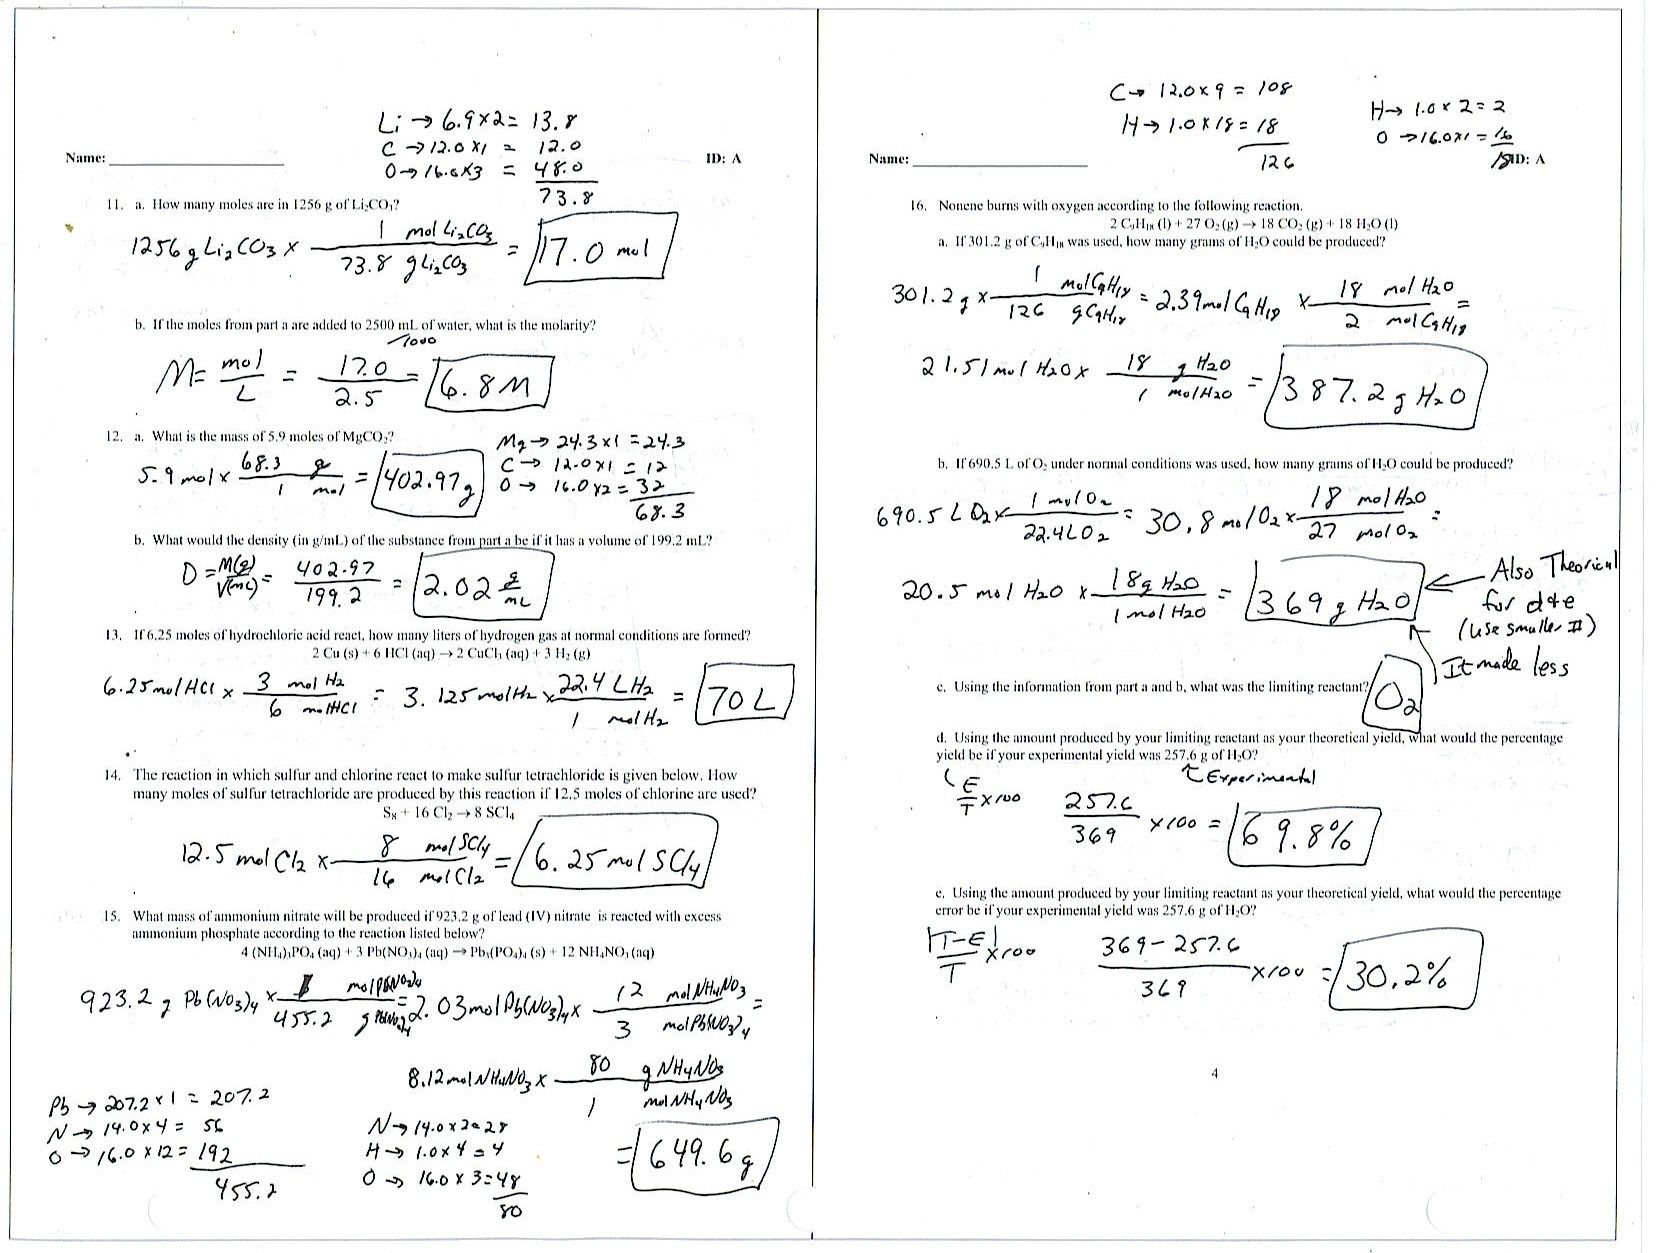 Li → 6.9x2= 13.8
C → 12.0 x1 = 12.0
O → 16.0x3 = 48.0
73.8
Name: ID: A
11. a. How many moles are in 1256 g of Li₂CO₃?
1256 g Li₂CO3 x 1 mol Li₂CO3 / 73.8 g Li₂CO3 = 17.0 mol
b. If the moles from part a are added to 2500 mL of water, what is the molarity?
/1000
M= mol / L = 17.0 / 2.5 = 6.8 M
12. a. What is the mass of 5.9 moles of MgCO₂?
Mg → 24.3 x1 = 24.3
C → 12.0x1 = 12
O → 16.0 x2 = 32
68.3
5.9 mol x 68.3 g / 1 mol = 402.97g
b. What would the density (in g/mL) of the substance from part a be if it has a volume of 199.2 mL?
D = M(g) / V(mL) = 402.97 / 199.2 = 2.02 g/mL
13. If 6.25 moles of hydrochloric acid react, how many liters of hydrogen gas at normal conditions are formed?
2 Cu (s) + 6 HCl (aq) → 2 CuCl₃ (aq) + 3 H₂ (g)
6.25 mol HCl x 3 mol H₂ / 6 mol HCl = 3.125 mol H₂ x 22.4 L H₂ / 1 mol H₂ = 70 L
14. The reaction in which sulfur and chlorine react to make sulfur tetrachloride is given below. How
many moles of sulfur tetrachloride are produced by this reaction if 12.5 moles of chlorine are used?
S₈ + 16 Cl₂ → 8 SCl₄
12.5 mol Cl₂ x 8 mol SCl₄ / 16 mol Cl₂ = 6.25 mol SCl₄
15. What mass of ammonium nitrate will be produced if 923.2 g of lead (IV) nitrate is reacted with excess
ammonium phosphate according to the reaction listed below?
4 (NH₄)₃PO₄ (aq) + 3 Pb(NO₃)₄ (aq) → Pb₃(PO₄)₄ (s) + 12 NH₄NO₃ (aq)
923.2 g Pb(NO3)4 x 1 mol Pb(NO3)4 / 455.2 g Pb(NO3)4 = 2.03 mol Pb(NO3)4 x 12 mol NH4NO3 / 3 mol Pb(NO3)4 =
8.12 mol NH4NO3 x 80 g NH4NO3 / 1 mol NH4NO3
= 649.6 g
Pb → 207.2 x 1 = 207.2
N → 14.0 x 4 = 56
O → 16.0 x 12 = 192
455.2
N → 14.0 x 2 = 28
H → 1.0 x 4 = 4
O → 16.0 x 3 = 48
80
C → 12.0 x 9 = 108
H → 1.0 x 18 = 18
126
H → 1.0 x 2 = 2
O → 16.0x1 = 16
18
Name: ID: A
16. Nonene burns with oxygen according to the following reaction.
2 C₉H₁₈ (l) + 27 O₂ (g) → 18 CO₂ (g) + 18 H₂O (l)
a. If 301.2 g of C₉H₁₈ was used, how many grams of H₂O could be produced?
301.2 g x 1 mol C9H18 / 126 g C9H18 = 2.39 mol C9H18 x 18 mol H2O / 2 mol C9H18 =
21.51 mol H2O x 18 g H2O / 1 mol H2O = 387.2 g H₂O
b. If 690.5 L of O₂ under normal conditions was used, how many grams of H₂O could be produced?
690.5 L O₂ x 1 mol O₂ / 22.4 L O₂ = 30.8 mol O₂ x 18 mol H2O / 27 mol O₂ =
20.5 mol H2O x 18g H2O / 1 mol H2O = 369 g H₂O
← Also Theorical
for d+e
(use smaller #)
It made less
c. Using the information from part a and b, what was the limiting reactant? O₂
d. Using the amount produced by your limiting reactant as your theoretical yield, what would the percentage
yield be if your experimental yield was 257.6 g of H₂O?
Experimental
E / T x100 257.6 / 369 x100 = 69.8%
e. Using the amount produced by your limiting reactant as your theoretical yield, what would the percentage
error be if your experimental yield was 257.6 g of H₂O?
|T-E| / T x100 369-257.6 / 369 x100 = 30.2%
4